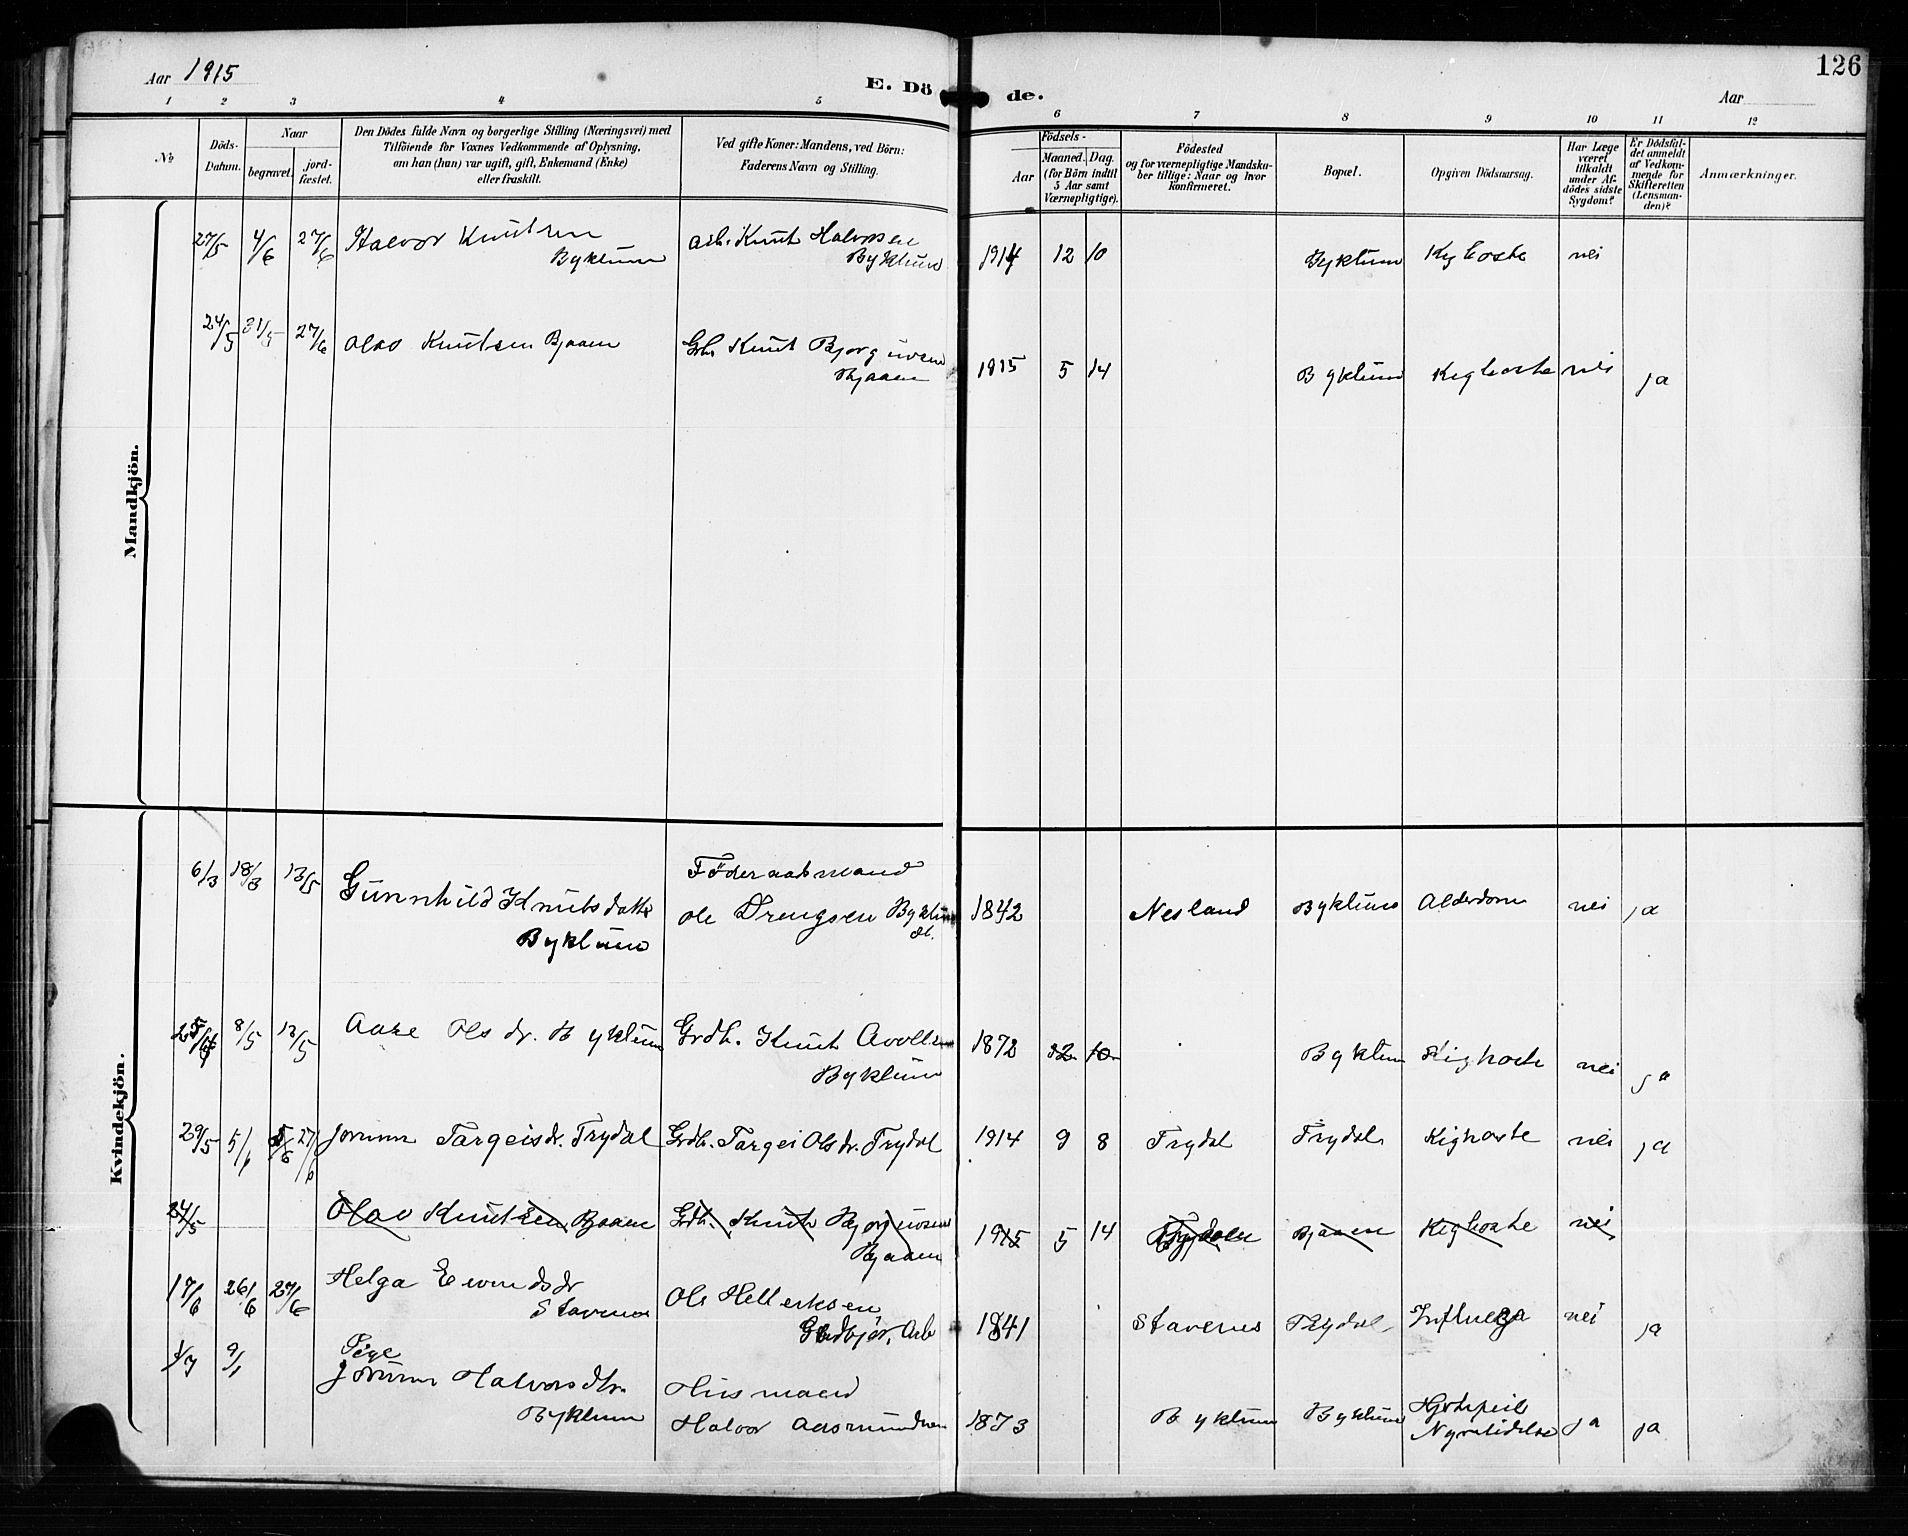 126
Aar 1915
E. Dö de.
Aar
1 2 3 4 5 6 7 8 9 10 11 12
No
Döds-Datum.
Naar
begravet.
jord-fæstet.
Den Dödes fulde Navn og borgerlige Stilling (Næringsvei) med
Tilföiende for Voxnes Vedkommende af Oplysning,
om han (hun) var ugift, gift, Enkemand (Enke)
eller fraskilt.
Ved gifte Koner: Mandens, ved Börn:
Faderens Navn og Stilling.
Födsels-
Aar
Maaned. Dag.
(for Börn indtil
5 Aar samt
Værnepligtige).
Födested
og for værnepligtige Mandska-
ber tillige: Naar og hvor
konfirmeret.
Bopæl.
Opgiven Dödsaarsag.
Har Læge
været
tilkaldt
under Af-
dödes sidste
Sygdom?
Er Dödsfal-
det anmeldt
af Vedkom-
mende for
Skifteretten
(Lensman-
den)?
Anmærkninger.
Mandkjön.
27/5 4/6 27/6 Halvor Knutsen Arb. Knut Halvorsen
Byklum Byklum 1914 12 10 Byklum Kighoste nei
24/5 31/5 27/6 Olav Knutsen Bjaaen Grb. Knut Bjorguvsen
Bjaaen 1915 5 14 Byklum Kighoste nei ja
Kvindekjön.
6/3 18/3 13/5 Gunnhild Knutsdatter Föderaadsmand
Byklum Ole Drengsen Byklum 1842 Nesland Byklum Alderdom nei ja
8/5 13/5 Aase Olsdr. Byklum Grdb. Knut
Byklum 1872 Byklum Kighoste nei ja
29/5 5/6 27/6 Jorunn Targeisdr. Trydal Grdb. Targei Olsdr. Trydal 1914 9 8 Trydal Trydal Kighoste nei ja
24/5 Olav Knutsen Bjaaen Grdb. Knut Bjorguvsen
Bjaaen 1915 5 14 Bjaaen Kighoste nei
17/6 26/6 27/6 Helga Eivindsdr
Stavenes Ole Helleiksen
Arb 1841 Stavenes Trydal Influenza nei ja
1/7 9/1 Pige
Jorunn Halvorsdtr. Husmand
Byklum Halvor Aasmundsen 1873 Byklum Byklum Hjertefeil
Nyrelidelse ja ja